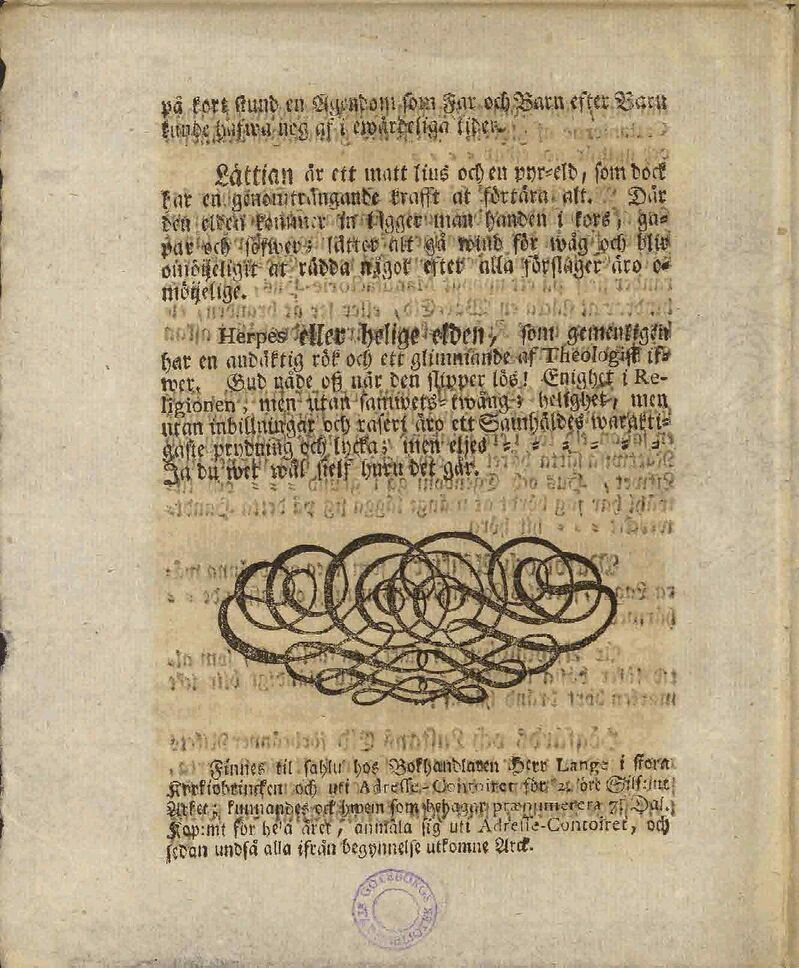 på kort stund en Ägendom som Far och Barn efter Barn
kunde hafwa nog af i ewärdeliga tider.
Lättian är ett matt lius och en pyr-eld, som dock
har en genomträngande krafft at förtära alt. Där
den elden kommer in lägger man handen i kors, ga-
par och söfwer; låtter alt gå wind för wåg och blir
omöijeligit at rädda något efter alla förslager äro o-
möijelige.
Herpes eller helige elden, som gemenligen
har en andäktig rök och ett glimmande af Theologisk if-
wer. Gud nåde oß när den slipper lös! Enighet i Re-
ligionen, men utan samwets-twång; helighet, men
utan inbillningar och raseri äro ett Samhäldes warakti-
gaste prydning och lycka; men eljes - - - - - -
Ja du wet wäl sielf huru det går.
Finnes til sahlu hos Bokhandlaren Herr Lange i stora
Kyrkiobrincken och uti Adresse-Contoiret för 21 öre Silf:mt
Arket; kunnandes ock hwem som behagar prænumerera 7½ Dal.
Kop:mt för hela året, anmäla sig uti Adresse-Contoiret, och
sedan undfå alla ifrån begynnelse utkomne Arck.
GÖTEBORGS